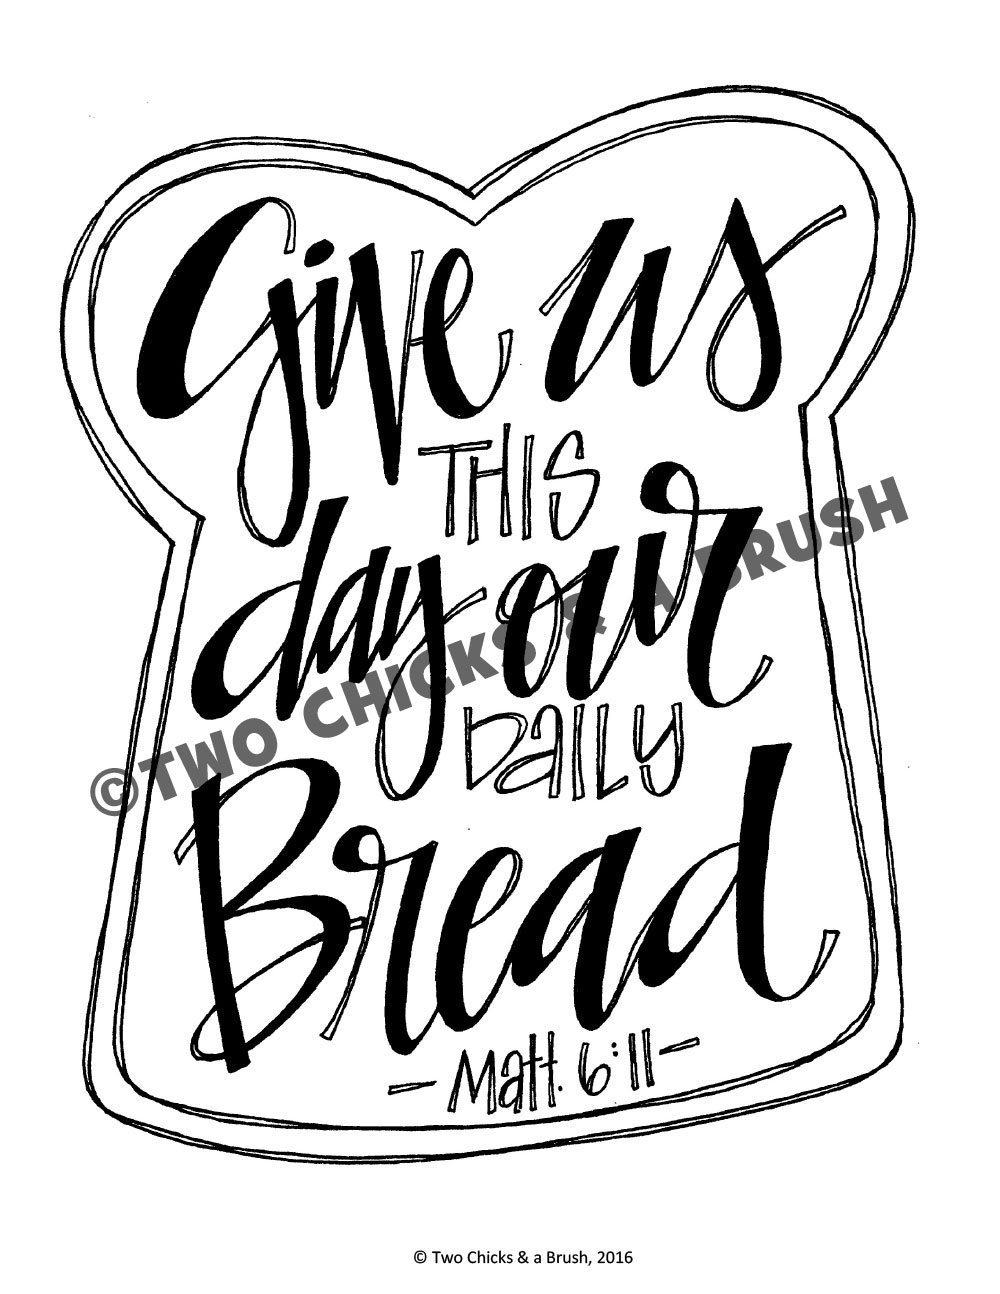 Give us
THIS
day our
DaiLy
Bread
- Matt. 6:11 -
©TWO CHICKS & A BRUSH
© Two Chicks & a Brush, 2016